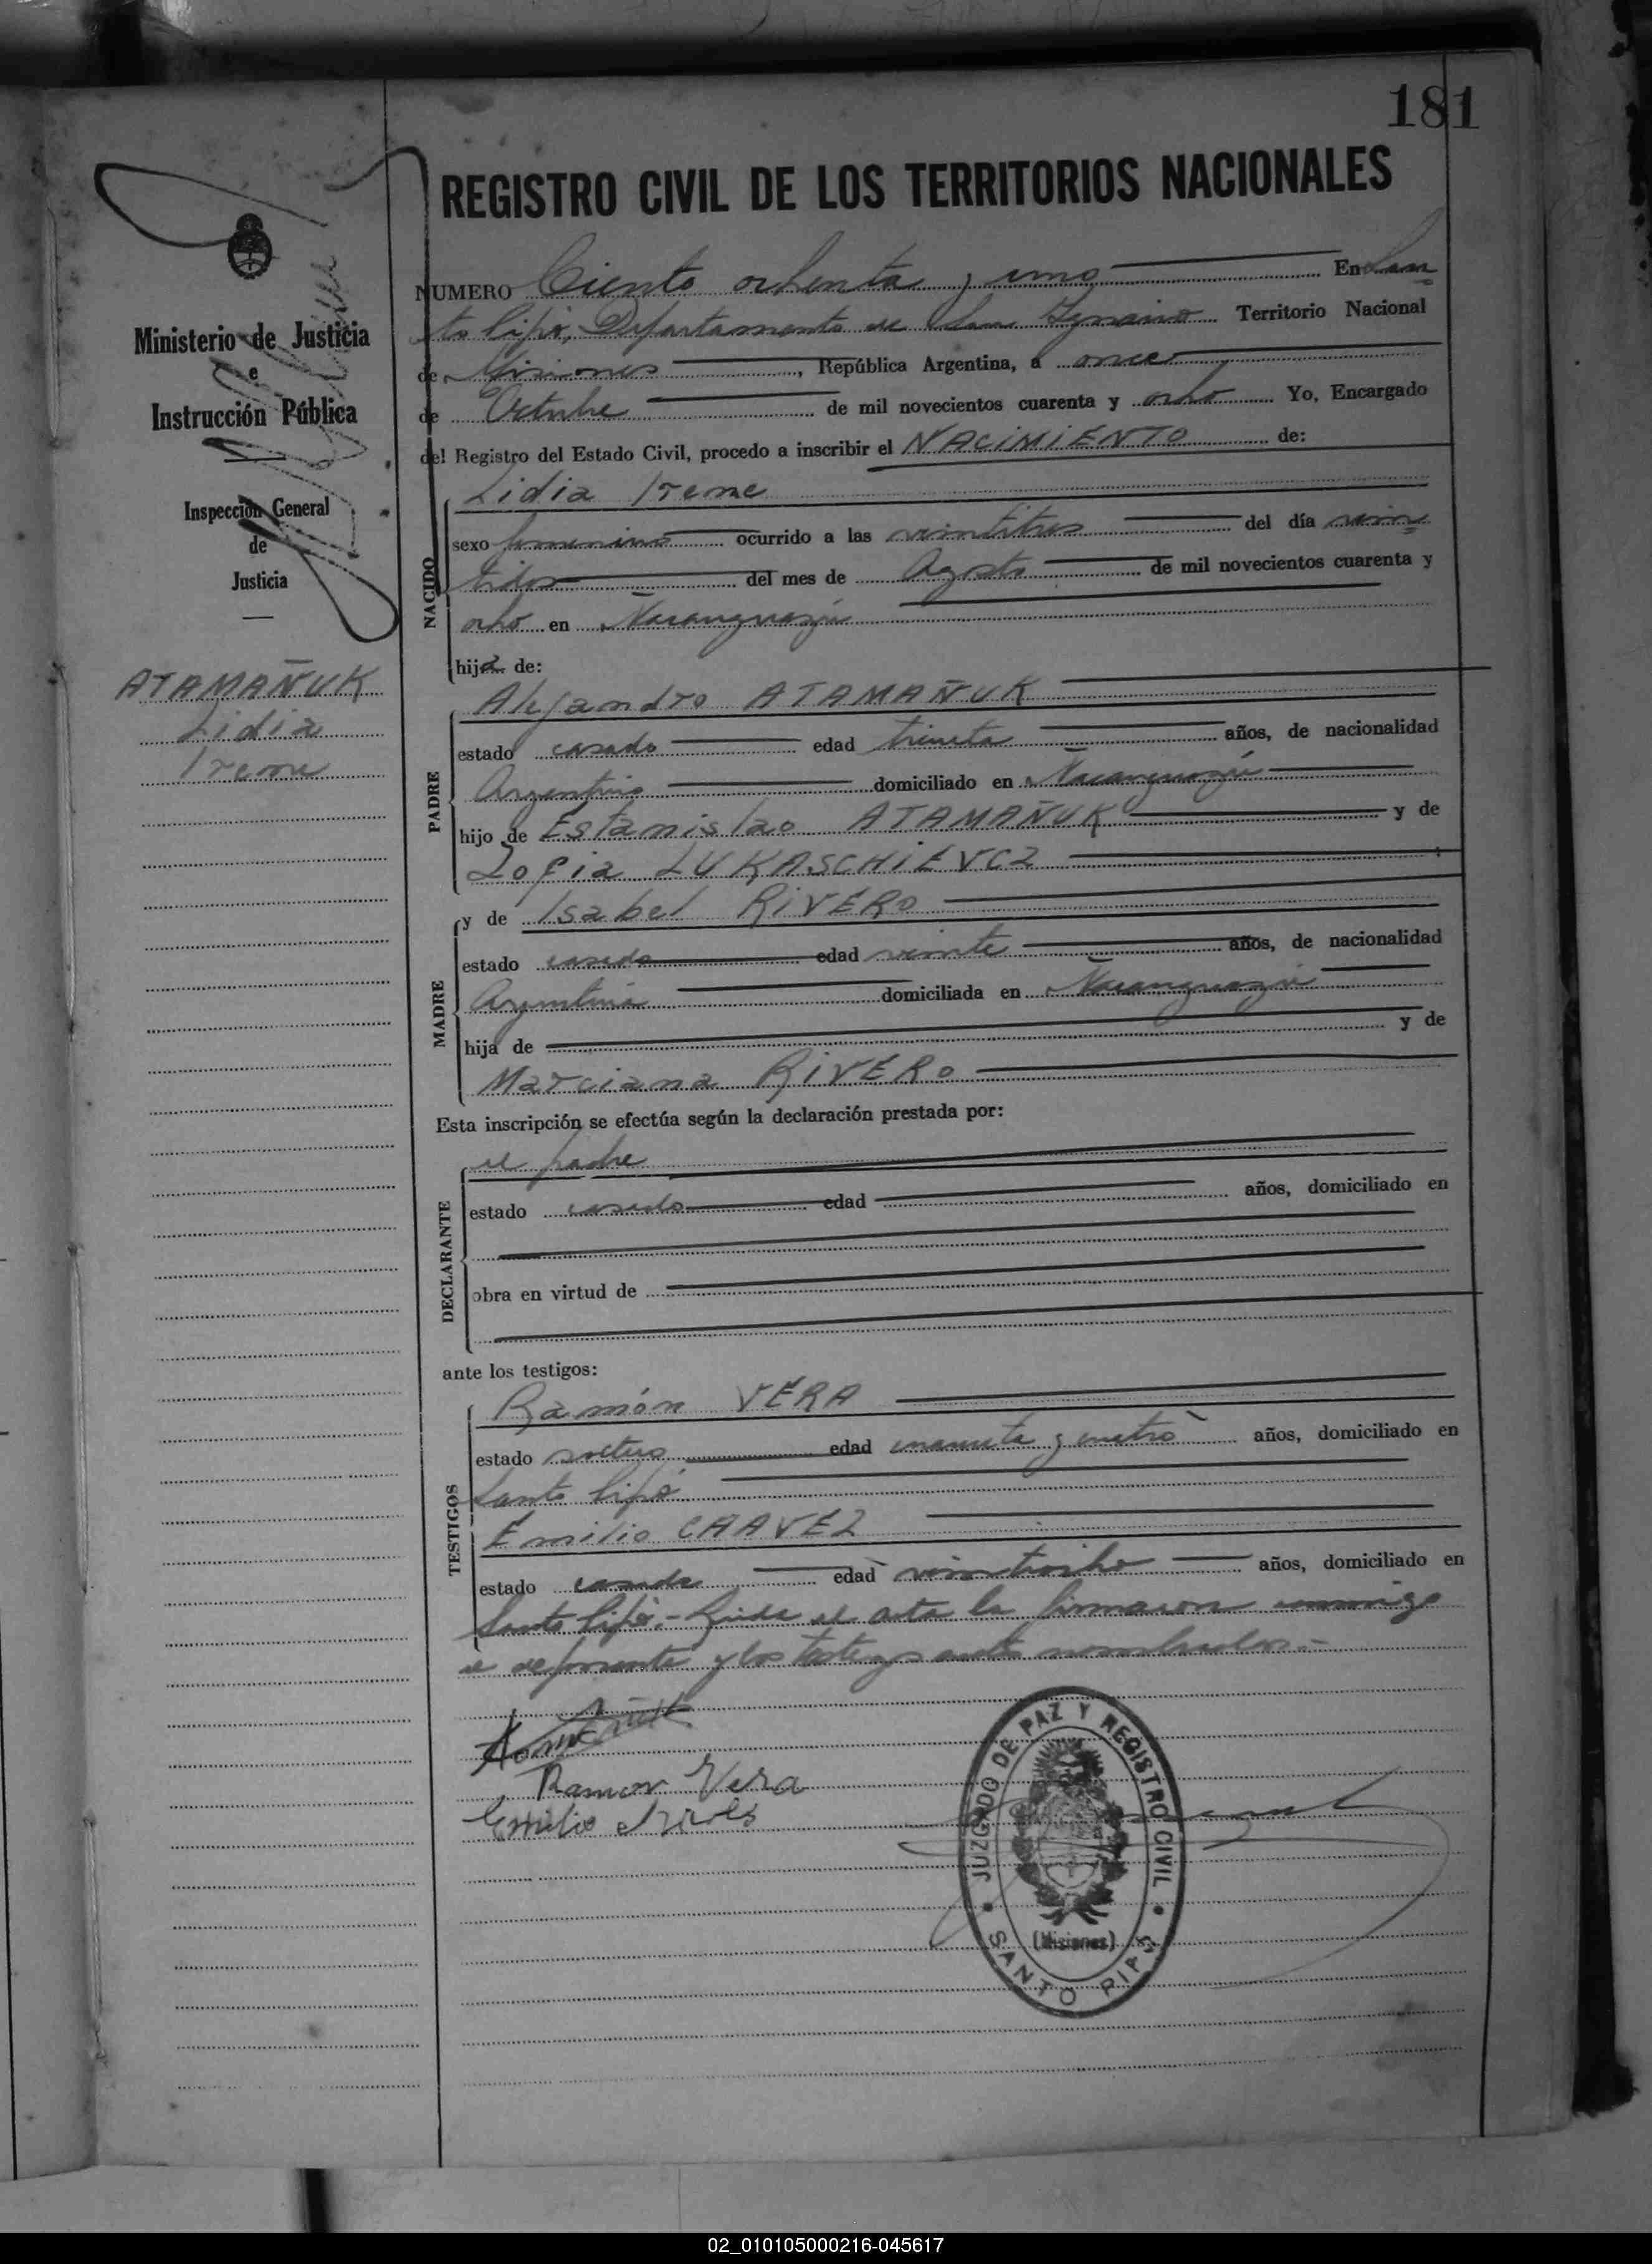 181
REGISTRO CIVIL DE LOS TERRITORIOS NACIONALES
Ministerio de Justicia
e
Instrucción Pública
Inspección General
de
Justicia
ATAMAÑUK
Lidia
Irene
NUMERO Ciento ochenta y uno En San
to Pipó, Departamento de San Ignacio Territorio Nacional
de Misiones, República Argentina, a once
de Octubre de mil novecientos cuarenta y ocho Yo, Encargado
del Registro del Estado Civil, procedo a inscribir el NACIMIENTO de:
NACIDO
Lidia Irene
sexo femenino ocurrido a las veintitres del día vein
tidos del mes de Agosto de mil novecientos cuarenta y
ocho en Ñacanguazú
hija de:
PADRE
Alejandro ATAMAÑUK
estado casado edad treinta años, de nacionalidad
Argentino domiciliado en Ñacanguazú
hijo de Estanislao ATAMAÑUK y de
Zofia LUKASCHIEVCZ
MADRE
y de Isabel RIVERO
estado casada edad veinte años, de nacionalidad
Argentina domiciliada en Ñacanguazú
hija de y de
Marciana RIVERO
Esta inscripción se efectúa según la declaración prestada por:
DECLARANTE
el padre
estado casado edad años, domiciliado en
obra en virtud de
ante los testigos:
TESTIGOS
Ramón VERA
estado soltero edad cuarenta y cuatro años, domiciliado en
Santo Pipó
Emilio CHAVEZ
estado casado edad veintiocho años, domiciliado en
Santo Pipó.- Leida el acta la firmaron conmigo
el deponente y los testigos ante nombrados.-
Ramon Vera
Emilio
JUZGADO DE PAZ Y REGISTRO CIVIL
(Misiones)
SANTO PIPÓ
02_010105000216-045617